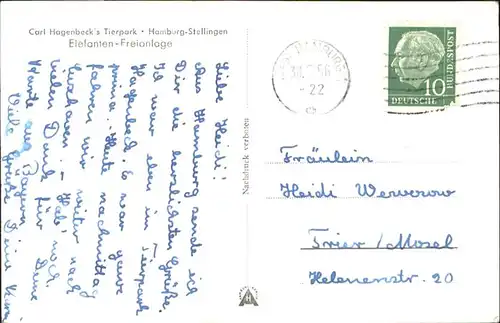 Carl Hagenbeck's Tierpark • Hamburg-Stellingen
Elefanten-Freianlage
Liebe Heidi!
Aus Hamburg sende ich
Dir die herzlichsten Grüße.
Ich war eben im Tierpark
Hagenbeck. Es war ganz
prima. Heute nachmittag
fahren wir weiter nach
Cuxhaven. – Hab' noch
vielen Dank für Deine
Karte aus Bayern
Viele Grüße Deine
Nachdruck verboten
HAMBURG
56
- 22
10
DEUTSCHE BUNDESPOST
Fräulein
Heidi Werwerow
Trier/Mosel
Helenenstr. 20